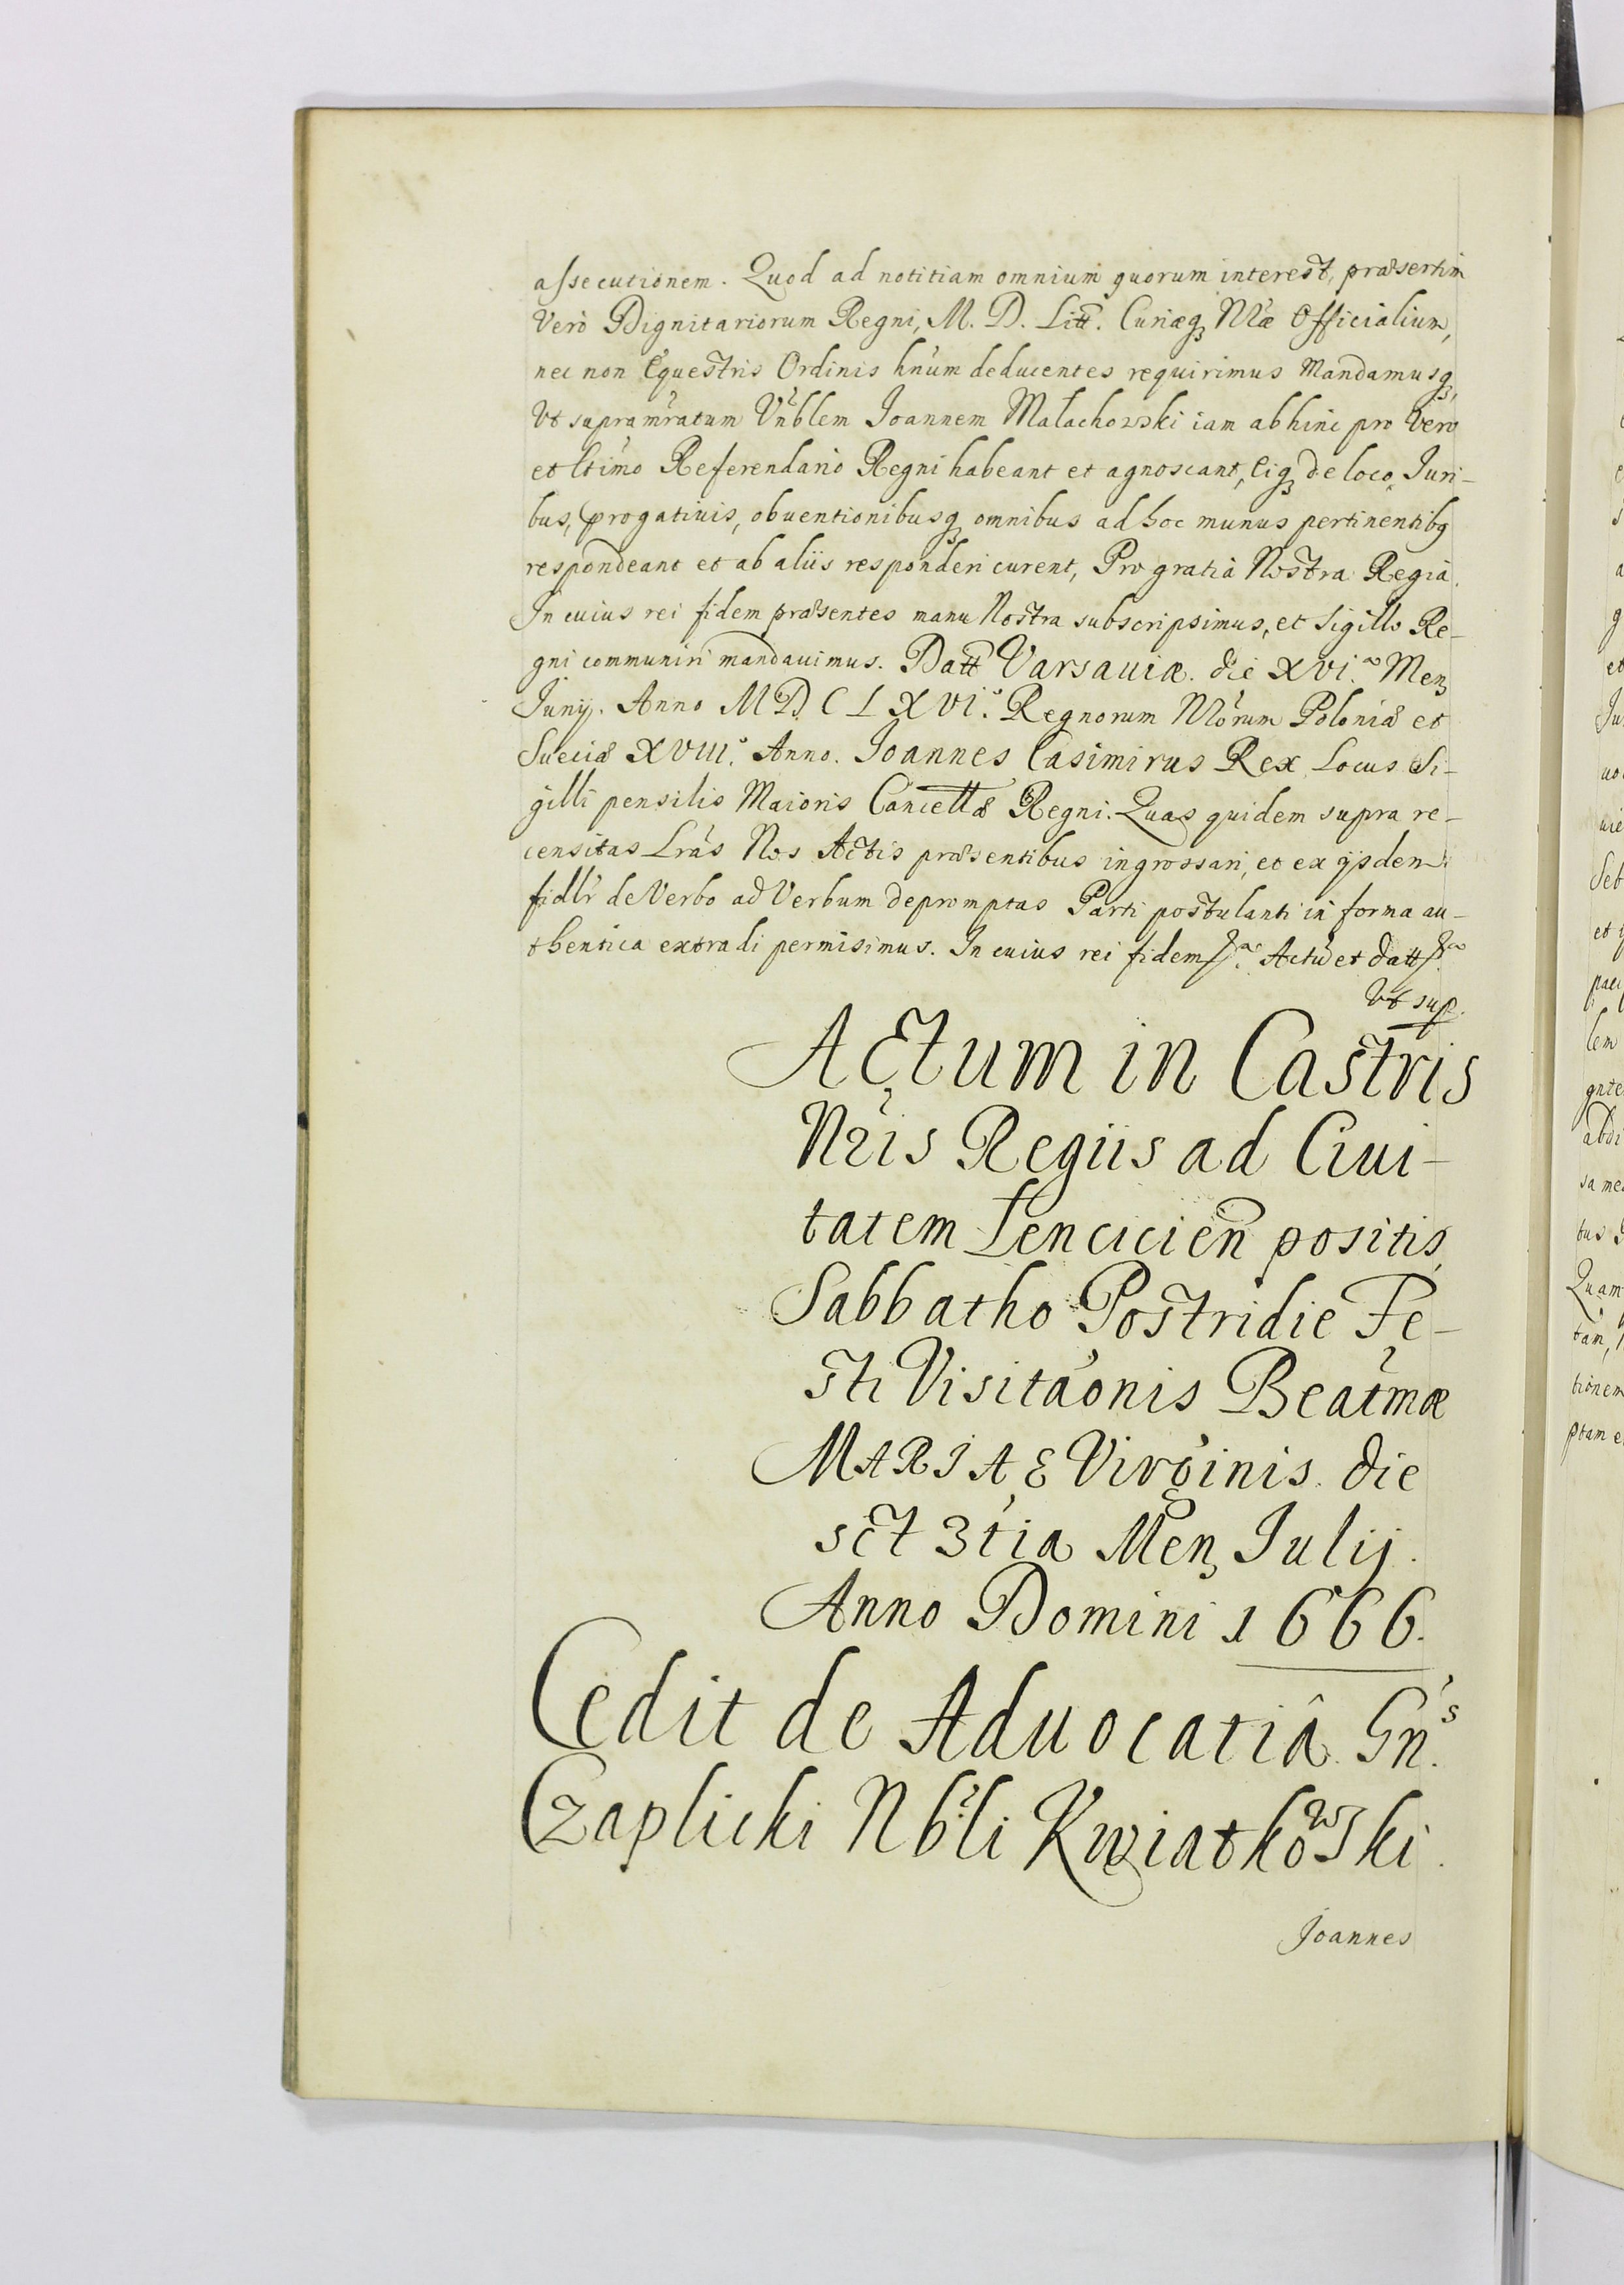 assecutionem. Quod ad notitiam omnium quorum interest, præsertim
Vero Dignitariorum Regni, M. D. Litt. Curiæq₃ Nræ Officialium,
nec non Equestris Ordinis hnum deducentes requirimus Mandamusq₃,
Vt supramratum Vrblem Joannem Malachowski iam abhinc pro Vero
et ltimo Referendario Regni habeant et agnoscant, Eiq₃ de loco, Juri-
bus, progatiuis, obuentionibusq₃ omnibus ad hoc munus pertinentibq
respondeant et ab aliis responderi curent, Pro gratia Nostra Regia.
In cuius rei fidem præsentes manu Nostra subscripsimus, et Sigillo Re-
gni communiri mandauimus. Datt Varsauiæ. die XVI.ª Men₃
Junij. Anno MDCLXVI.º Regnorum Nrorum Poloniæ et
Sueciæ XVIII.º Anno. Joannes Casimirus Rex. Locus Si-
gilli pensilis Maioris Cancellæ Regni. Quas quidem supra re-
censitas Lras Nos Actis præsentibus ingrossari, et ex ijsdem
fidlr de Verbo ad Verbum depromptas Parti postulanti in forma au-
thentica extradi permisimus. In cuius rei fidem Actu et datt
Vt sup.
Actum in Castris
Nris Regiis ad Ciui-
tatem Lencicien positis
Sabbatho Postridie Fe-
sti Visitaonis Beatmæ
MARIAE Virginis die
sct 3tia Men₃ Julij.
Anno Domini 1666.
Cedit de Aduocatiâ Gn.s
Czaplicki Nbli Kwiatkowski.
Joannes